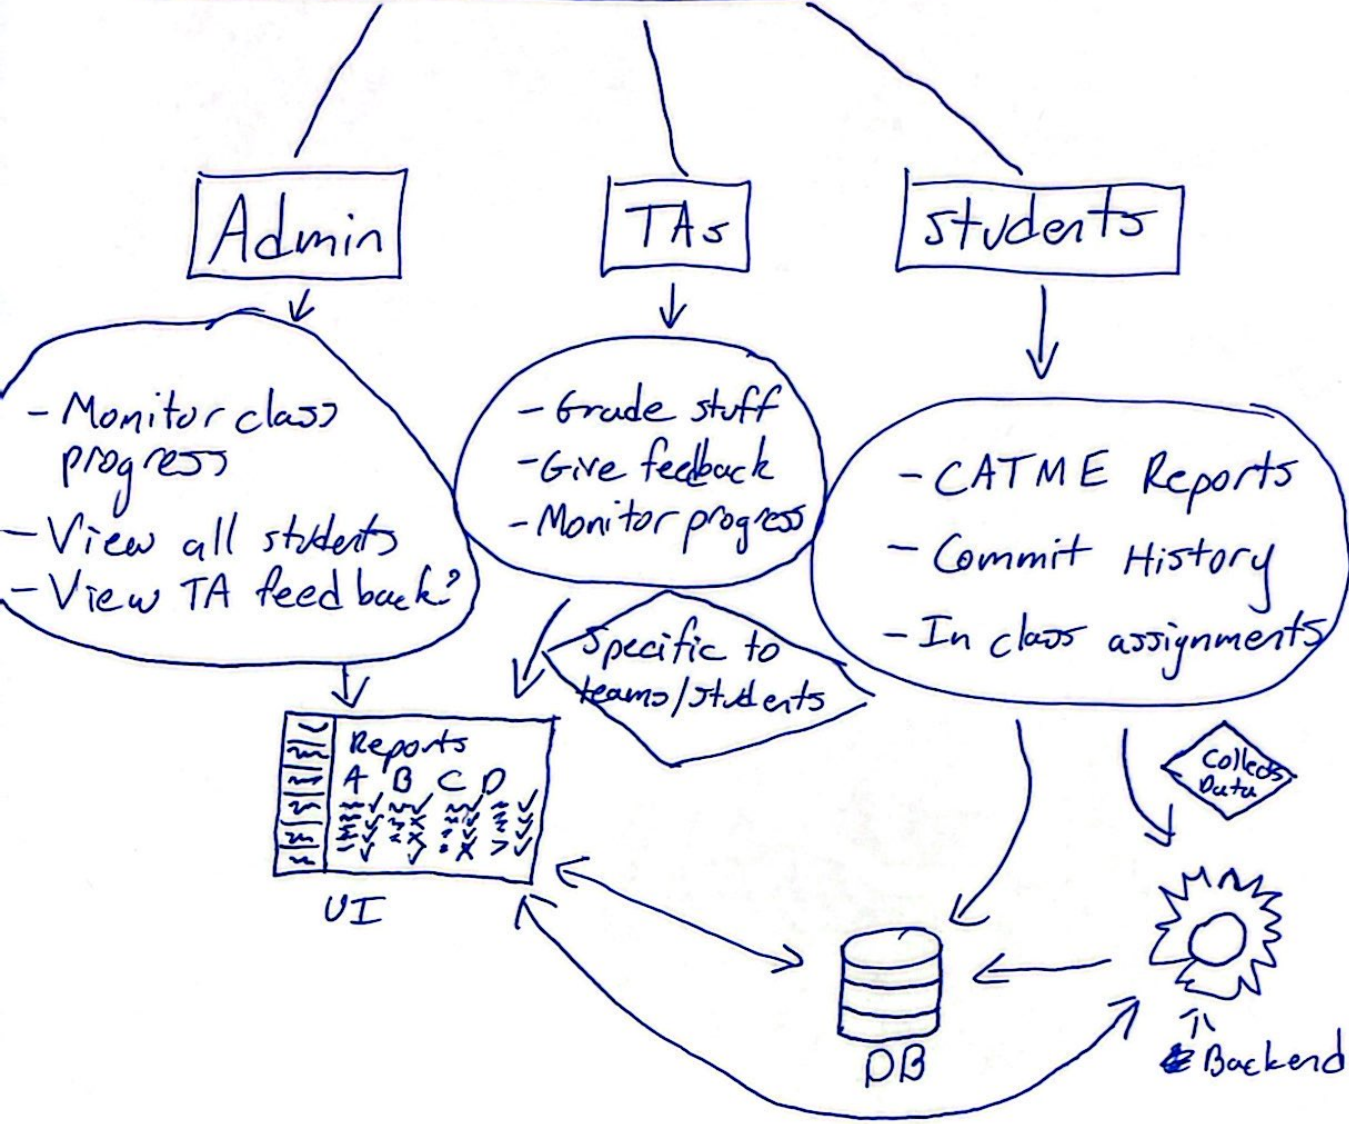 Admin
TAs
students
- Monitor class
progress
- View all students
- View TA feedback?
- Grade stuff
- Give feedback
- Monitor progress
- CATME Reports
- Commit History
- In class assignments
Specific to
teams/students
Collects
Data
Reports
A B C D
UI
DB
Backend